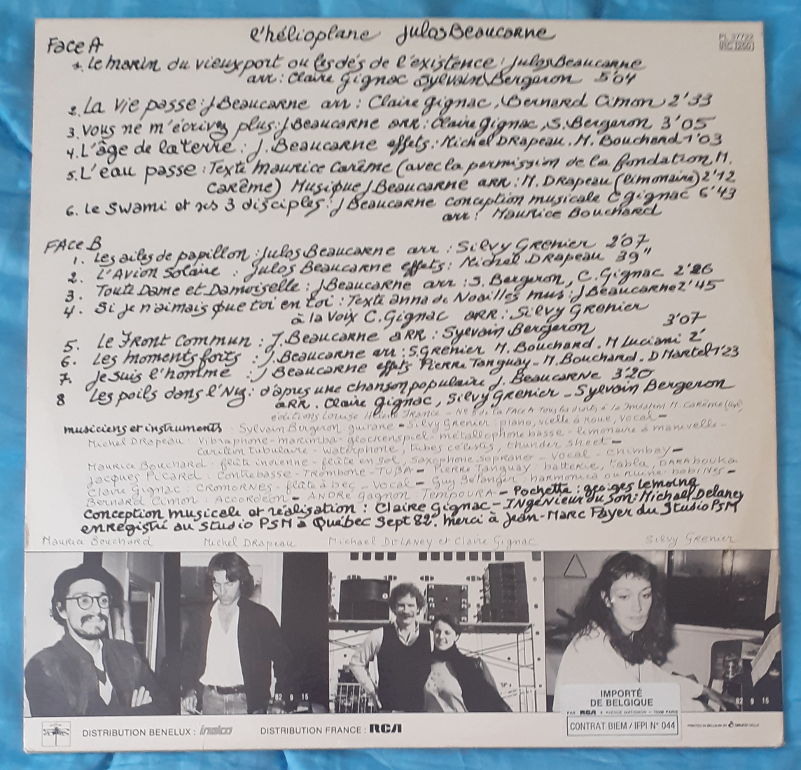 l'hélioplane Julos Beaucarne
PL 37722
Face A
1. Le marin du vieux port ou les dés de l'existence : Julos Beaucarne
arr : Claire Gignac Sylvain Bergeron 5'04
2. La vie passe : J Beaucarne arr : Claire Gignac, Bernard Cimon 2'33
3. Vous ne m'écrivez plus : J Beaucarne arr : Claire Gignac, S. Bergeron 3'05
4. L'âge de la terre : J. Beaucarne effets : Michel Drapeau. M. Bouchard 1'03
5. L'eau passe : Texte Maurice Carême (avec la permission de la fondation M.
Carême) Musique J Beaucarne arr : M. Drapeau (limonaire) 2'12
6. Le Swami et ses 3 disciples : J Beaucarne conception musicale C Gignac 6'43
arr : Maurice Bouchard
Face B
1. Les ailes de papillon : Julos Beaucarne arr : Silvy Grenier 2'07
2. L'Avion Solaire : Julos Beaucarne effets : Michel Drapeau 39"
3. Toute Dame et Damoiselle : J Beaucarne arr : S. Bergeron, C. Gignac 2'26
4. Si je n'aimais que toi en toi : Texte anna de Noailles mus : J Beaucarne 2'45
à la voix C. Gignac arr : Silvy Grenier
5. Le Front Commun : J. Beaucarne arr : Sylvain Bergeron 3'07
6. Les moments forts : J. Beaucarne arr : S. Grenier M. Bouchard. M Luciani 2'
7. Je suis l'homme : J Beaucarne effets Pierre Tanguay - M. Bouchard - D Martel 1'23
8 Les poils dans l'Nez : d'après une chanson populaire J. Beaucarne 3'20
arr. Claire Gignac, Silvy Grenier - Sylvain Bergeron
musiciens et instruments : Sylvain Bergeron guitare - Silvy Grenier piano, vielle à roue, vocal -
Michel Drapeau : Vibraphone - marimba - glockenspiel - métallophone basse - limonaire à manivelle -
carillon tubulaire - waterphone, tubes célestes, thunder sheet -
Maurice Bouchard - flûte indienne - flûte en sol, saxophone soprano - vocal - chimbay -
Jacques Picard : contrebasse - Trombone - TUBA - Pierre Tanguay batterie, tabla, DARABOUKA
Claire Gignac : CROMORNES - flûte à bec - vocal - Guy Bélanger harmonica ou ruine babines -
Bernard Cimon : Accordéon - ANDRÉ Gagnon TEMPOURA - Pochette : georges Lemoine
Conception musicale et réalisation : Claire Gignac - INgénieur du son : Michael Delaney
enregistré au studio PSM à Québec Sept 82. merci à Jean-Marc Fayer du Studio PSM
Maurice Bouchard Michel DRapeau Michael DeLaney et Claire Gignac Silvy Grenier
82 9 15
82 9 15
IMPORTÉ
DE BELGIQUE
PAR RCA
CONTRAT BIEM / IFPI N° 044
DISTRIBUTION BENELUX : inelco DISTRIBUTION FRANCE : RCA